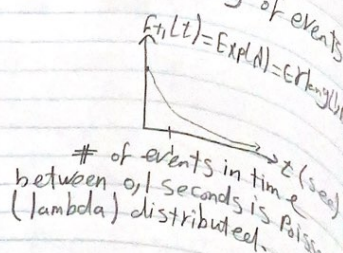 of events
f_{t1}(t)=Exp(λ)=Erlang(1,
t(sec)
# of events in time
between 0,1 seconds is Poiss
(lambda) distributed.